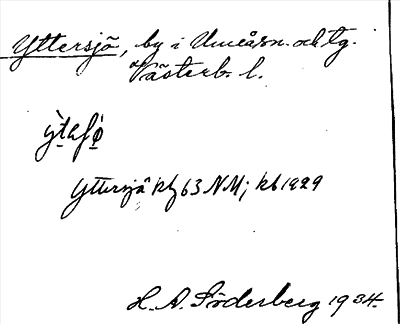 Yttersjö, by i Umeå sn. och tg.
Västerb. l.
Yttersjö ktz 63 NM; kb 1929
H. A. Söderberg 1934.